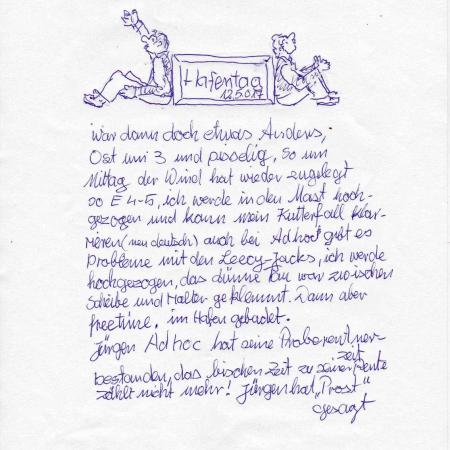 Hafentag
12.5.017
war dann doch etwas Anders,
Ost um 3 und pisselig, so um
Mittag der Wind hat wieder zugelegt
so E 4-5, ich werde in den Mast hoch-
gezogen und kann mein Kutterfall klar-
rieren (neu deutsch) auch bei Adhoc gibt es
Probleme mit den Leecy-Jacks, ich werde
hochgezogen, das dünne Tau war zwischen
Scheibe und Halter geklemmt. Dann aber
freetime, im Hafen gebadet.
Jürgen Ad hoc hat seine Proberentner-
zeit
bestanden, das bischen Zeit zu seiner Rente
zählt nicht mehr! Jürgen hat "Prost"
gesagt